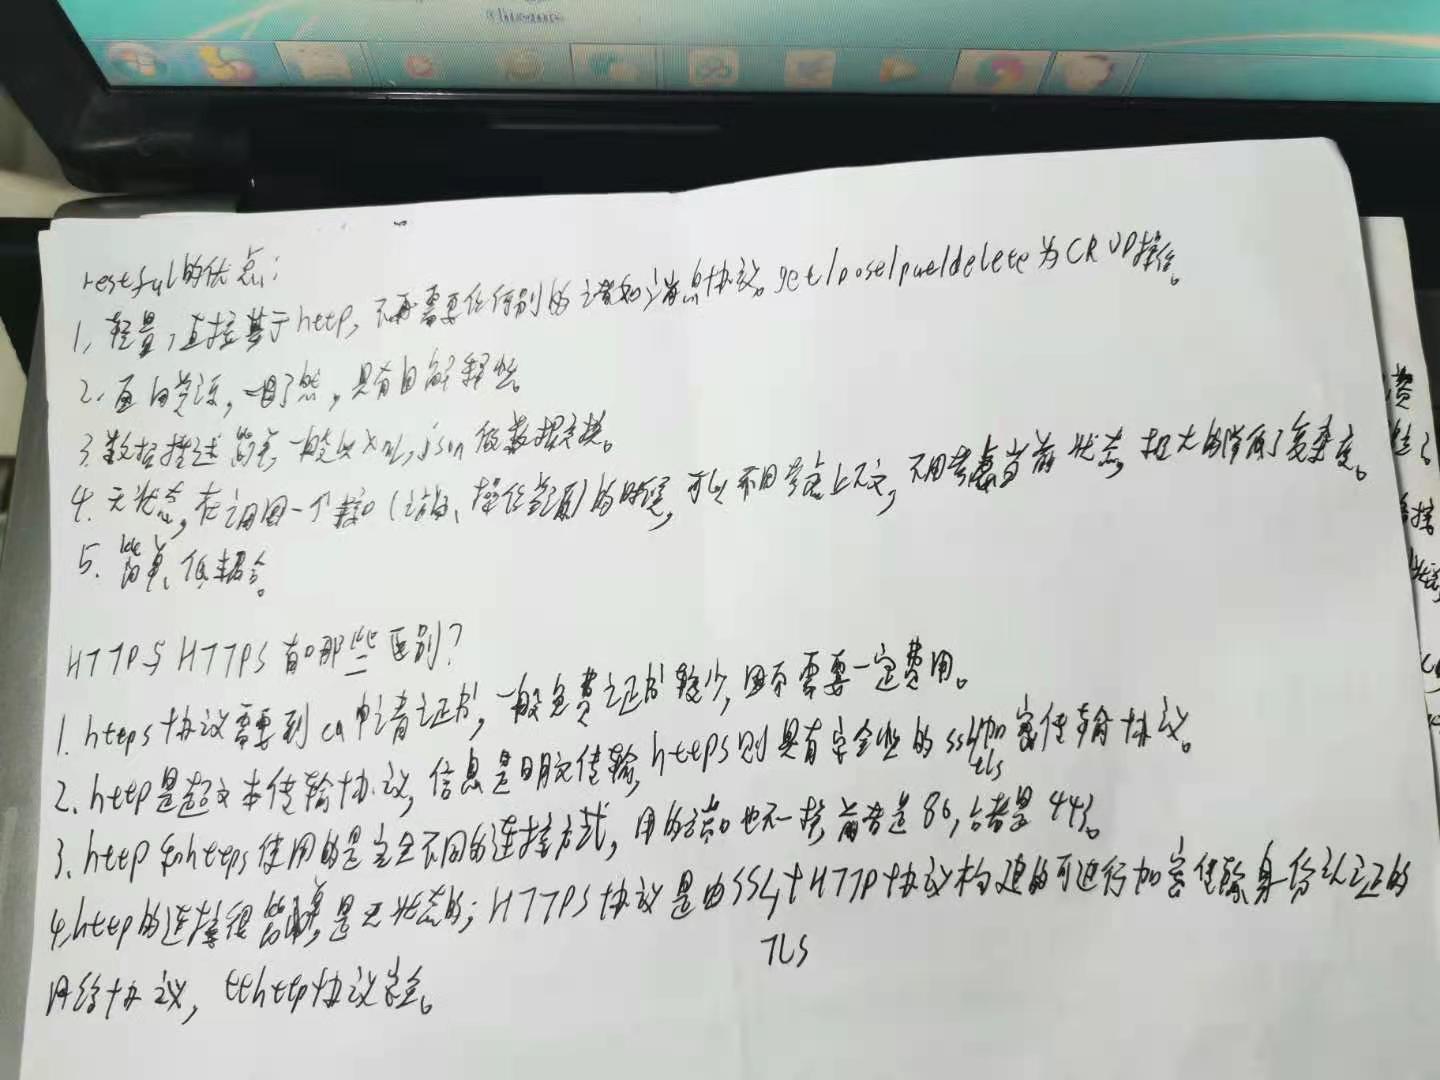 restful的优点:
1, 轻量,直接基于http,不再需要任何别的诸如消息协议。get/post/put/delete为CRUD操作。
2. 面向资源,一目了然,具有自解释性。
3. 数据描述简单,一般以xml,json做数据交换。
4. 无状态,在调用一个接口(访问、操作资源)的时候,可以不用考虑上下文,不用考虑当前状态,极大的降低了复杂度。
5. 简单、低耦合。
HTTP与HTTPS有哪些区别?
1. https协议需要到ca申请证书,一般免费证书较少,因而需要一定费用。
2. http是超文本传输协议,信息是明文传输,https则具有安全性的ssl加密传输协议。
tls
3. http和https使用的是完全不同的连接方式,用的端口也不一样,前者是80,后者是443。
4. http的连接很简单,是无状态的;HTTPS协议是由SSL+HTTP协议构建的可进行加密传输身份认证的
TLS
网络协议,比http协议安全。